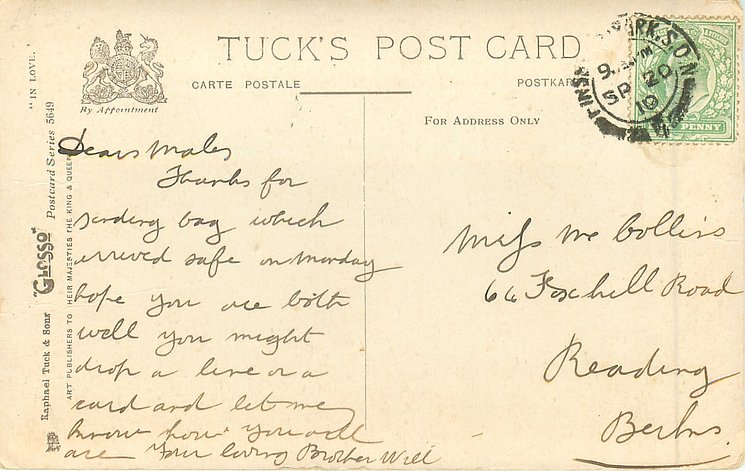 TUCK'S POST CARD
CARTE POSTALE
POSTKAR
By Appointment
FOR ADDRESS ONLY
PENNY
SP 20
10
"IN LOVE."
Raphael Tuck & Sons' "GLOSSO" Postcard Series 5649
ART PUBLISHERS TO THEIR MAJESTIES THE KING & QUEEN
Dear Males
Thanks for
sending bag which
arrived safe on Monday
hope you are both
well you might
drop a line or a
card and let me
know how you all
are Your loving Brother Will
Miss M Collins
66 Foxhill Road
Reading
Berks